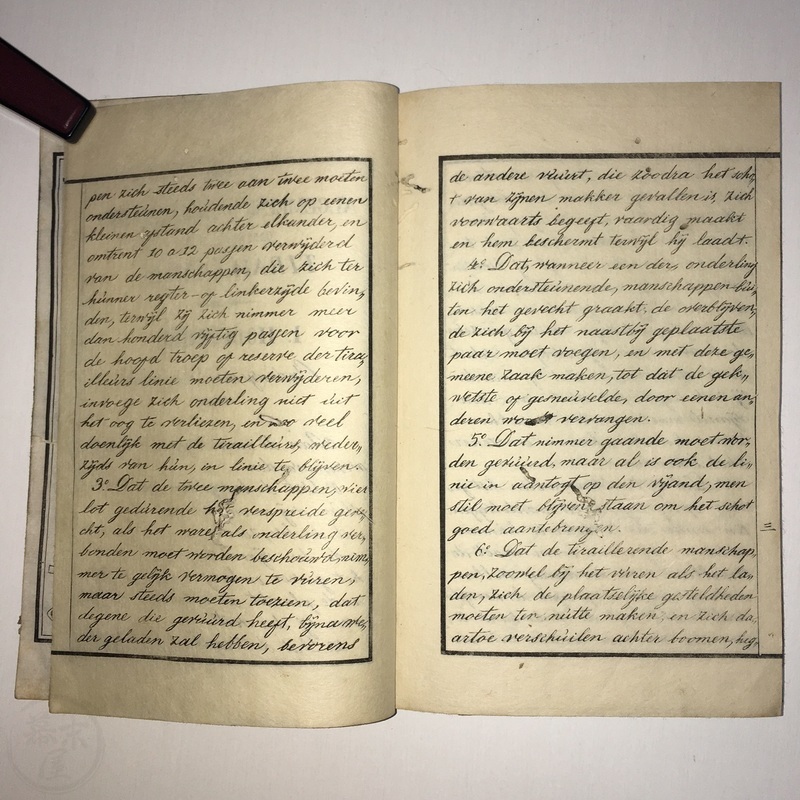 pen zich steeds twee aan twee moeten
ondersteúnen, hoúdende zich op eenen
kleinen afstand achter elkander, en
omtrent 10 a 12 passen verwijderd
van de manschappen, die zich ter
húnner regter- of linkerzijde bevin„
den, terwijl zij zich nimmer meer
dan honderd vijftig passen voor
de hoofd troep of reserve der tira„
illeúrs linie moeten verwijderen,
invoege zich onderling niet úit
het oog te verliezen, en zoo veel
doenlijk met de terailleúrs, weder„
zijds van hún, in linie te blijven.
3e. Dat de twee manschappen, wier
lot gedúrende het verspreide gevę
cht, als hot ware, als onderling ver,
bonden moet worden beschoúwd, nim,
mer te gelijk vermogen te vúren,
maar steeds moeten toezien, dat
degene die gevúúrd heeft, bijna we,
der geladen zal hebben, bevorens
de andere vúúrt, die zoodra het scho,
t van zijnen makker gevallen is, zich
voorwaarts begeeft, vaardig maakt
en hem beschermt terwijl hij laadt.
4e. Dat, wanneer een der, onderling
zich ondersteúnende, manschappen búi„
ten het gevecht graakt, de overblijven,
de zich bij het naastbij geplaatste
paar moet voegen, en met deze ge„
meene zaak maken, tot dat de gek„
wetste of gesneúvelde, door eenen an,
deren vervangen.
5e. Dat nimmer gaande moet wor„
den gevúúrd, maar al is ook de li„
nie in aantogt op den vijand, men
stil moet blijven staan om het schot
goed aantebrengen.
6e. Dat de tiraillerende manschap,
pen, zoowel bij het vúren als het la„
den, zich de plaatselijke gesteldheden
moeten ter nútte maken, en zich da„
artoe verschúilen achter boomen, heg„
三